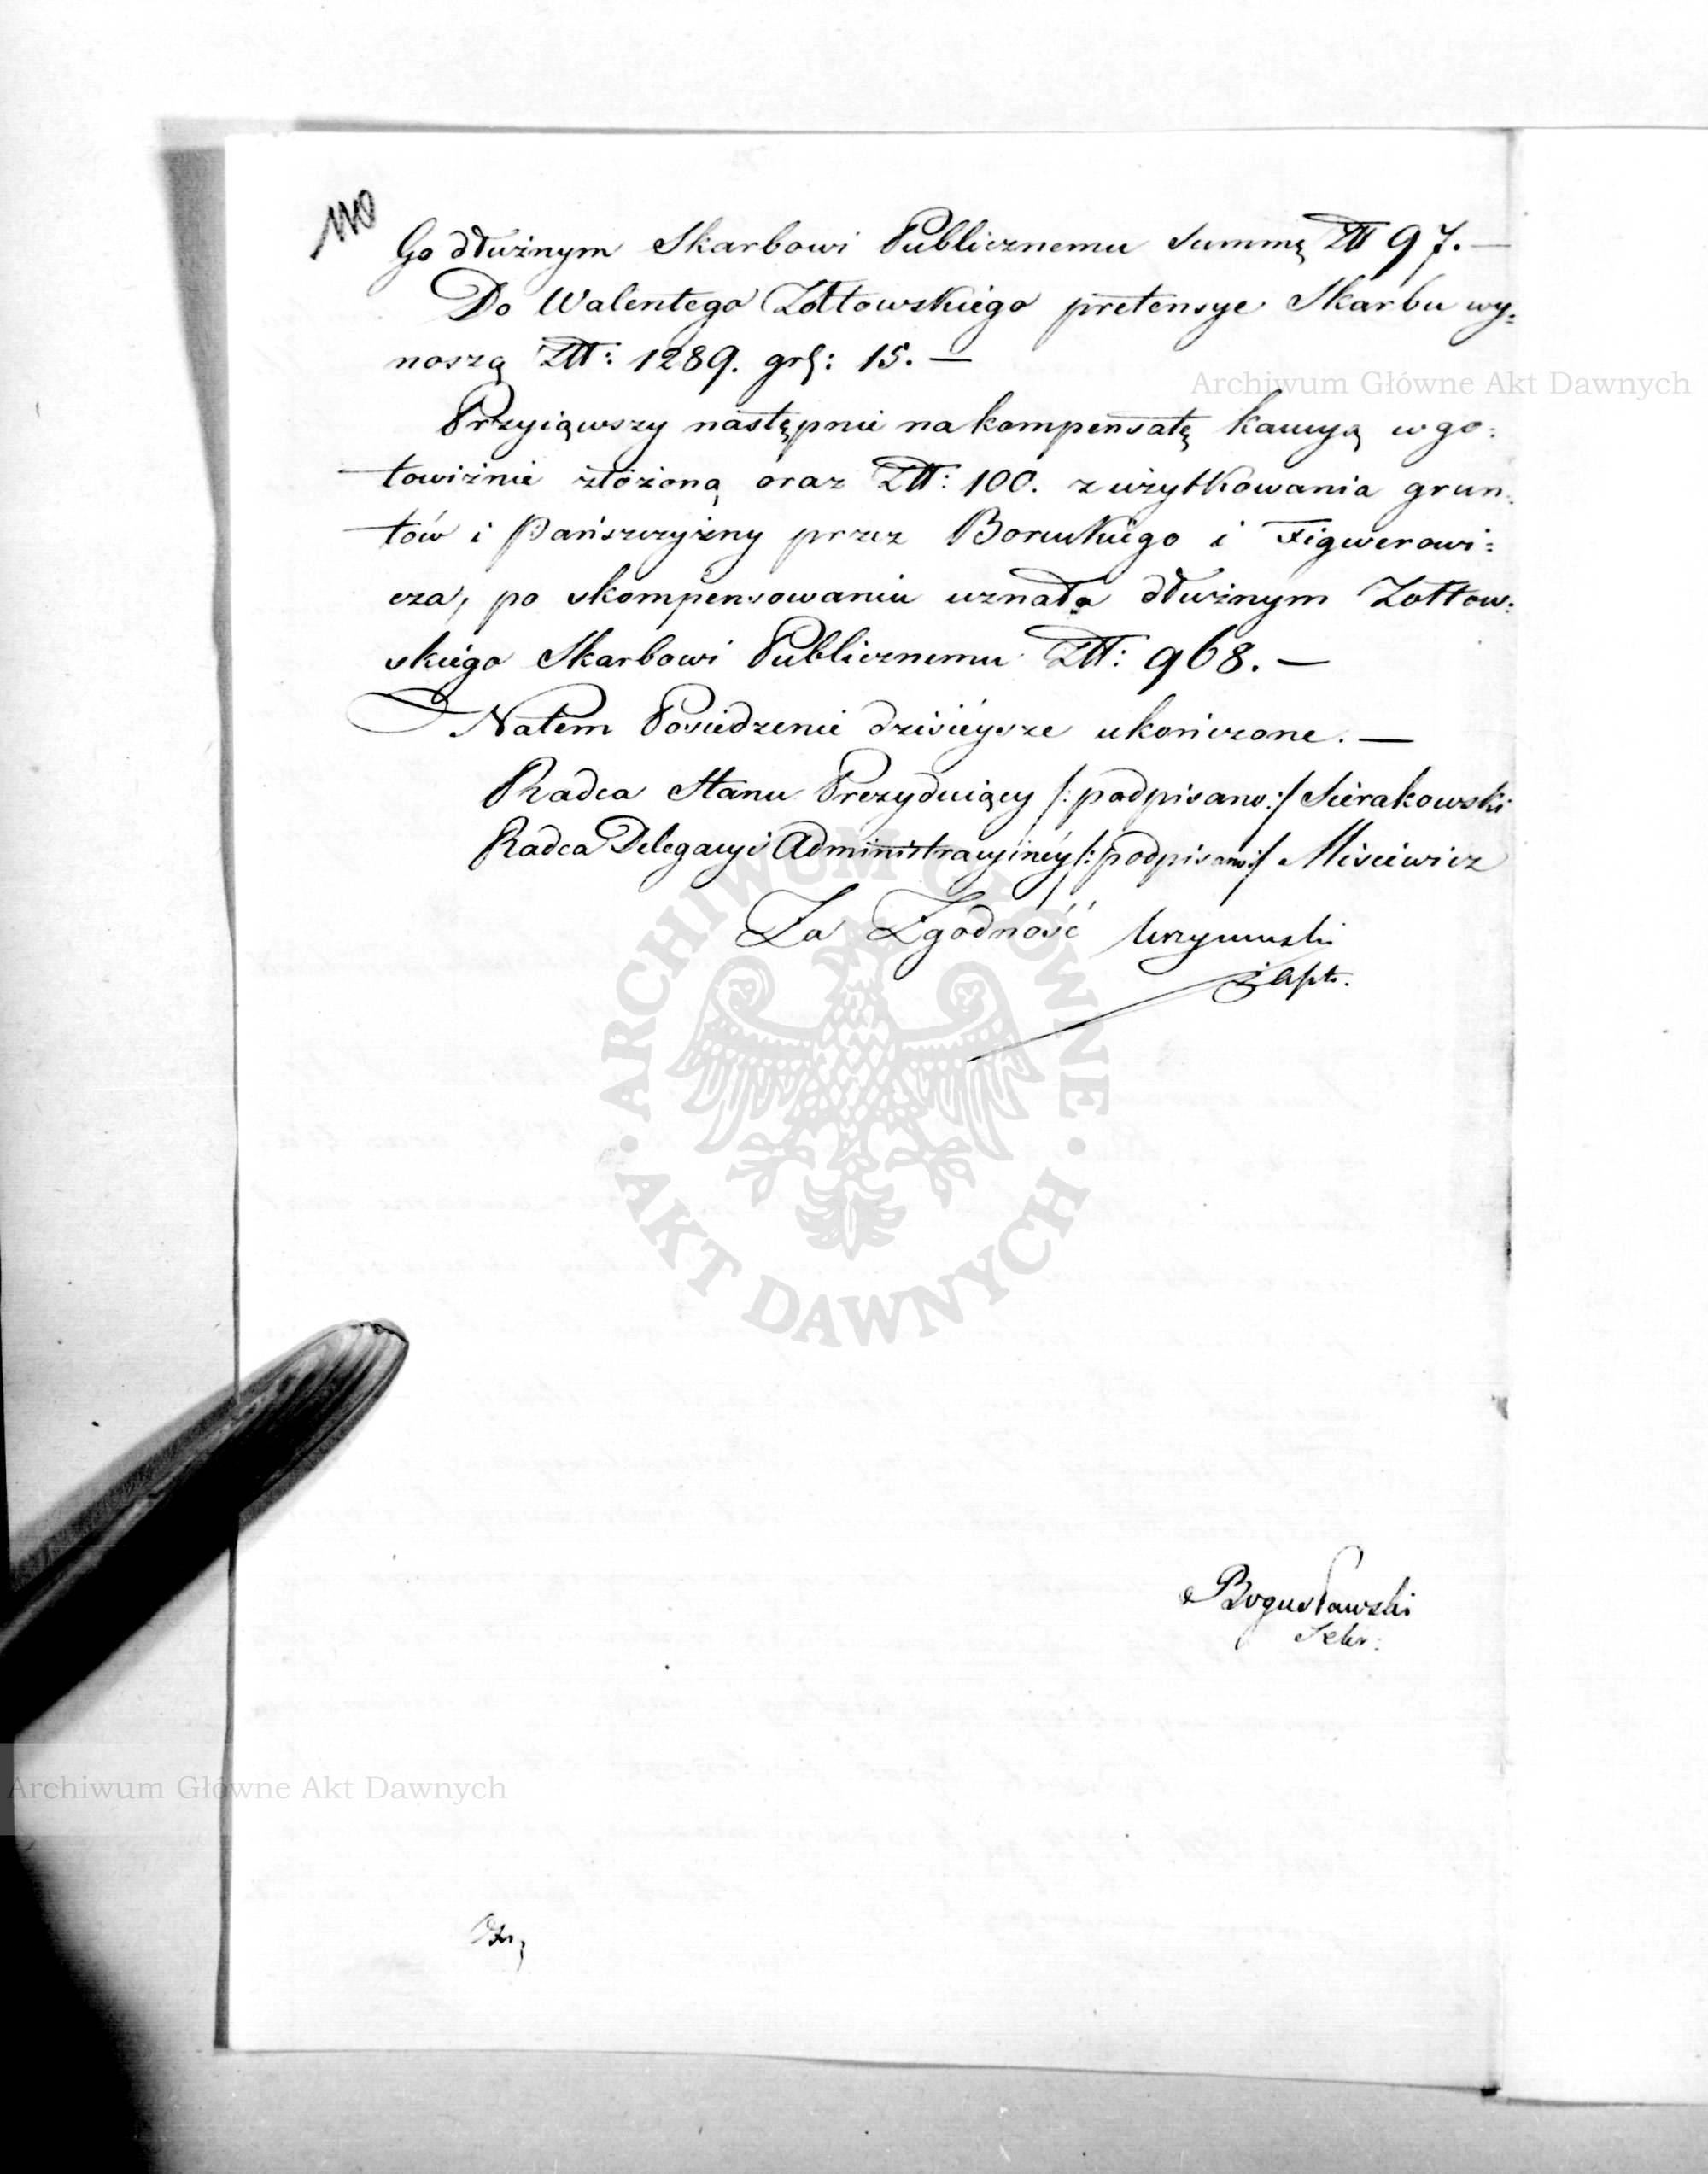 110
Go dłużnym Skarbowi Publicznemu Summę Złł 97. —
Do Walentego Żółtowskiego pretensye Skarbu wy=
noszą Złł: 1289. grß: 15. —
Archiwum Główne Akt Dawnych
Przyiąwszy następnie na kompensatę kaucyą w go=
towiźnie złożoną oraz Złł: 100. z użytkowania grun=
tów i Pańszczyżny przez Boruckiego i Figwerowi=
cza, po skompensowaniu uznała dłużnym Żołtow=
skiego Skarbowi Publicznemu Złł: 968. —
Na tem Posiedzenie dzisieysze ukończone. —
Radca Stanu Prezyduiący /: podpisano :/ Sierakowski
Radca Delegacyi Administracyinéy /: podpisano :/ Misiewicz
Za Zgodność
Bogusławski
Sekr:
ARCHIWUM GŁÓWNE · AKT DAWNYCH ·
Archiwum Główne Akt Dawnych